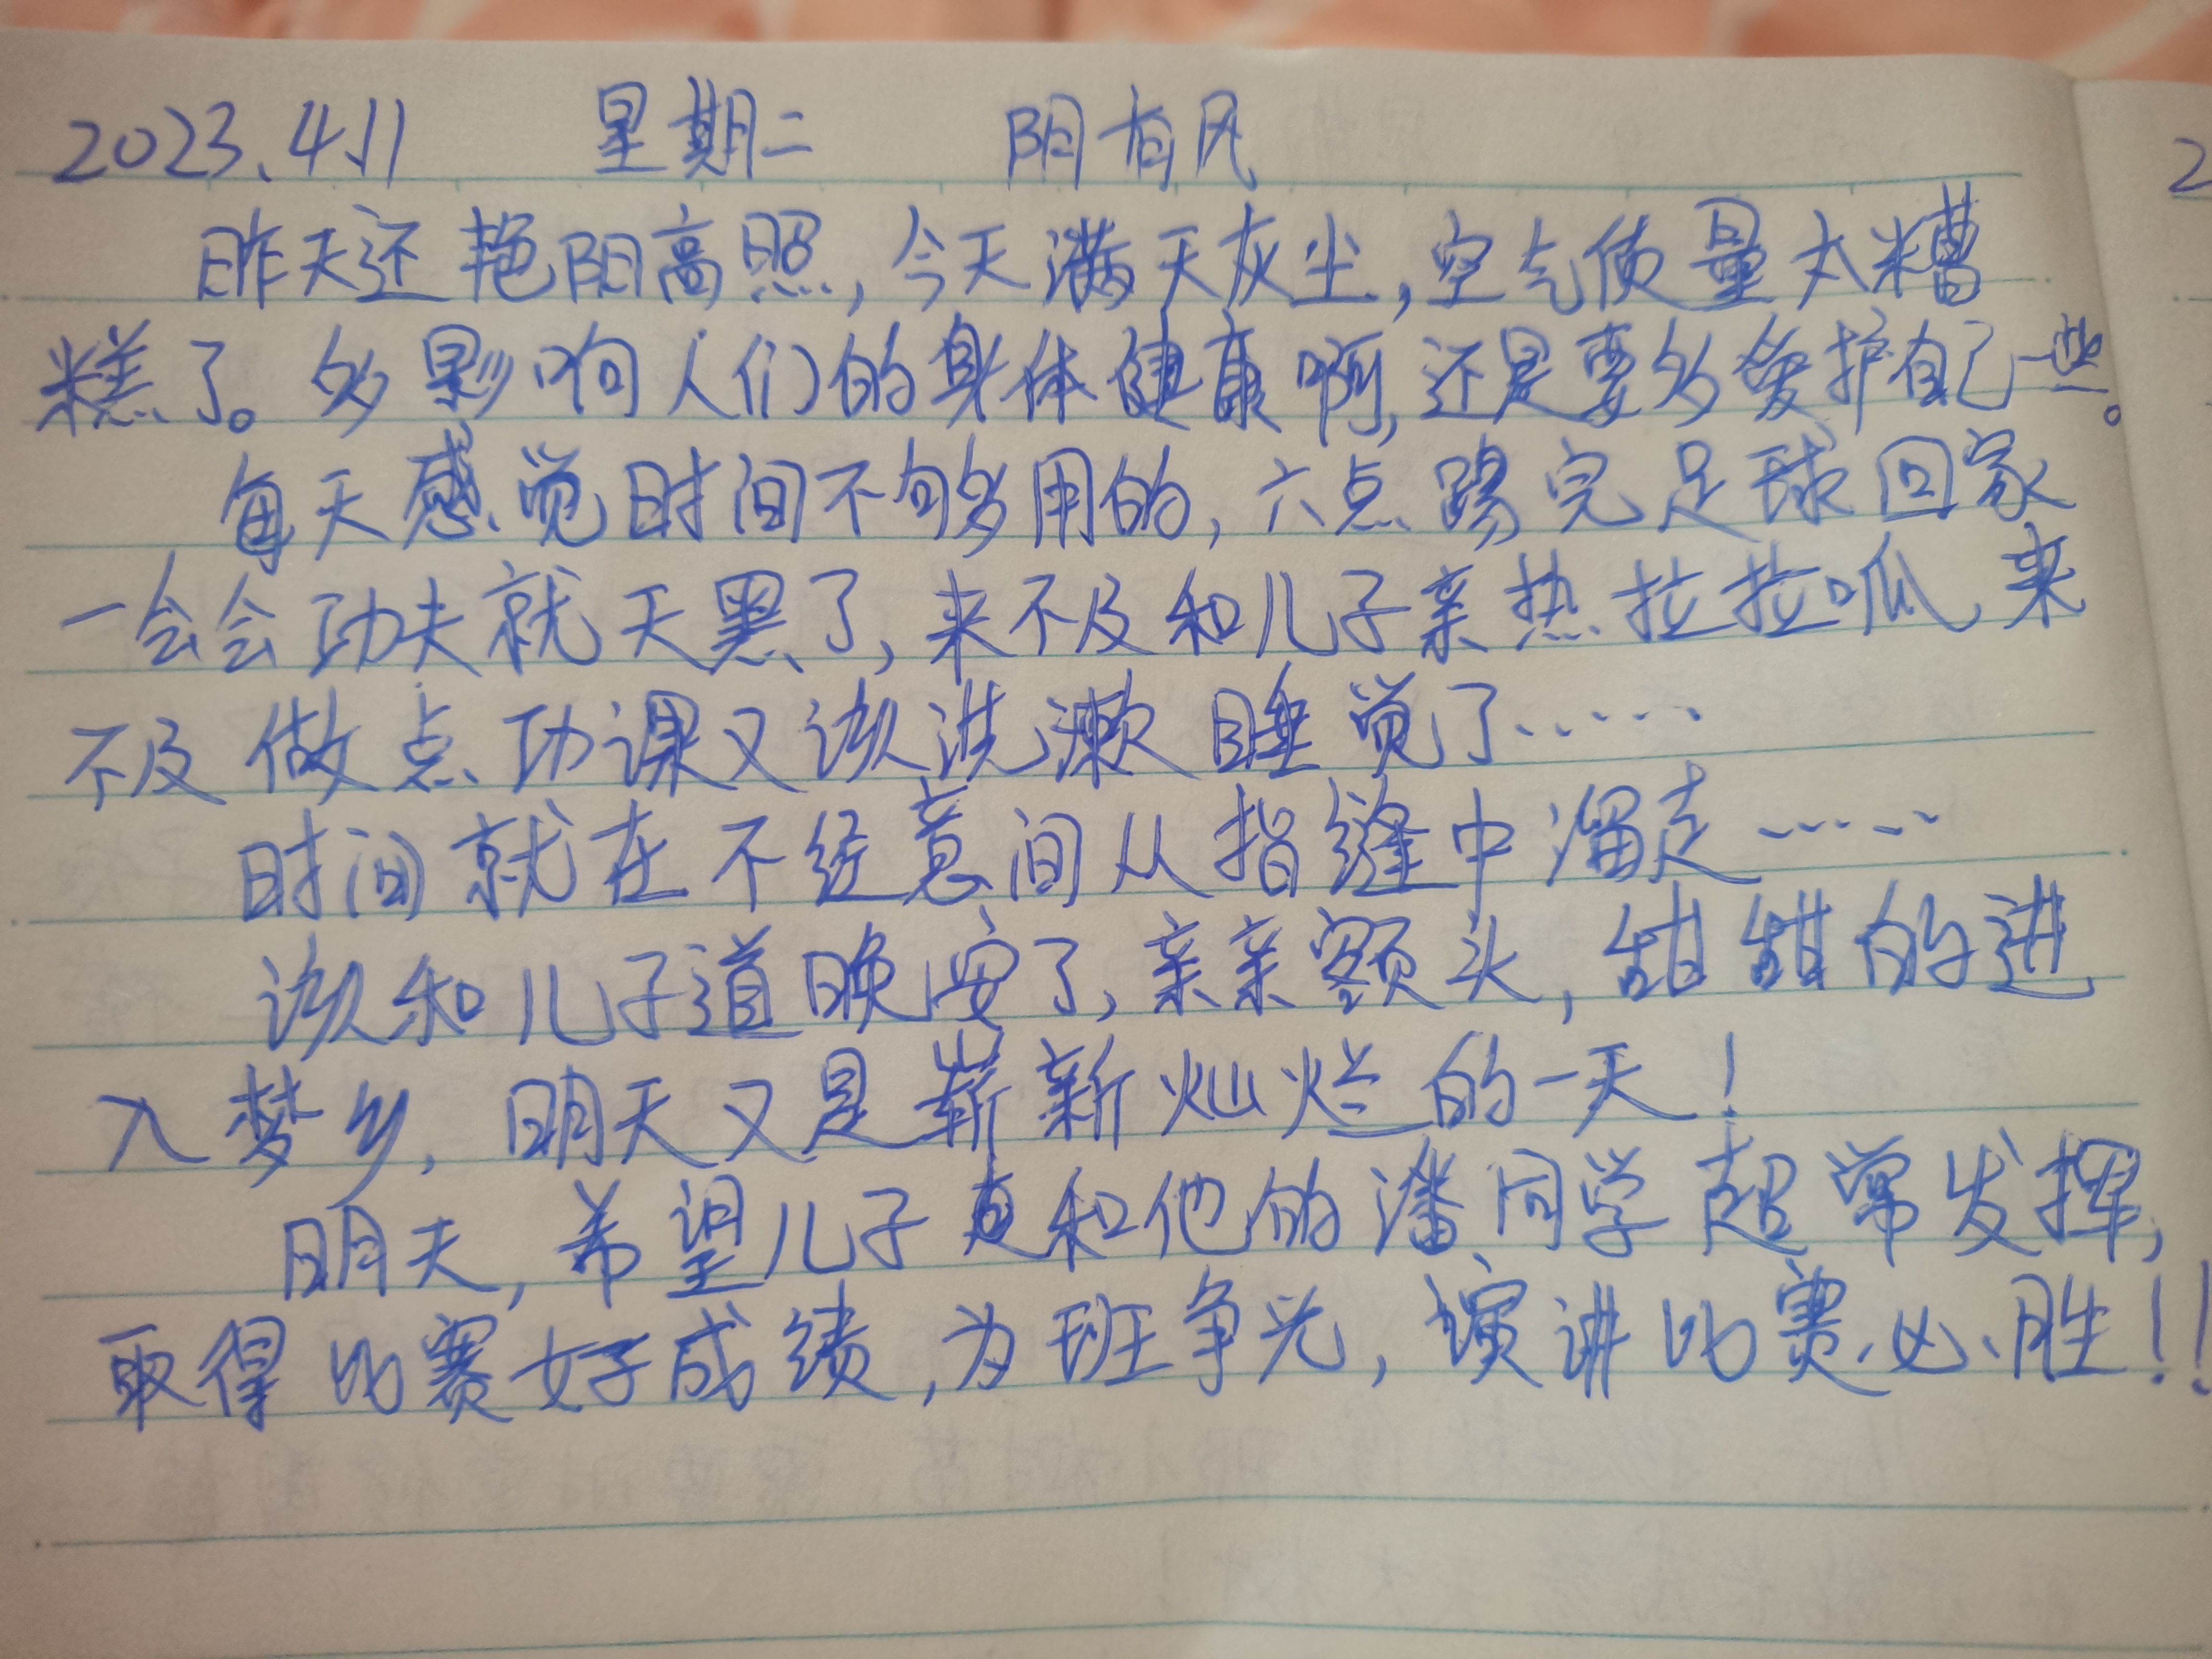 2023.4.11 星期二 阴有风
昨天还艳阳高照,今天满天灰尘,空气质量太糟
糕了。多影响人们的身体健康啊,还是要多爱护自己一些。
每天感觉时间不够用的,六点踢完足球回家
一会会功夫就天黑了,来不及和儿子亲热拉拉呱,来
不及做点功课又该洗漱睡觉了……
时间就在不经意间从指缝中溜走……
该和儿子道晚安了,亲亲额头,甜甜的进
入梦乡,明天又是崭新灿烂的一天!
明天,希望儿子和他的潘同学超常发挥,
取得比赛好成绩,为班争光,演讲比赛必胜!!
2